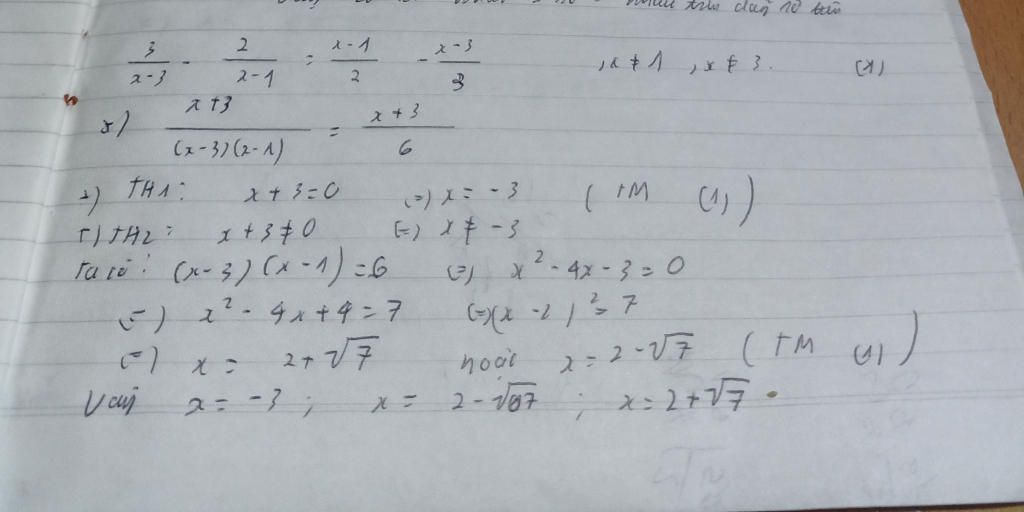 3/(x-3) - 2/(x-1) = (x-1)/2 - (x-3)/3 , x ≠ 1 , x ≠ 3. (1)
(x+3)/((x-3)(x-1)) = (x+3)/6
+) TH1: x + 3 = 0 (=) x = -3 ( TM (1) )
+) TH2: x + 3 ≠ 0 (=) x ≠ -3
Ta có: (x-3)(x-1) = 6 (=) x² - 4x - 3 = 0
(=) x² - 4x + 4 = 7 (=) (x-2)² = 7
(=) x = 2+√7 hoặc x = 2-√7 ( TM (1) )
Vậy x = -3 ; x = 2-√7 ; x = 2+√7.